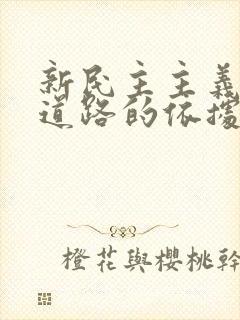 新民主主義
道路的依據
橙花與櫻桃幹